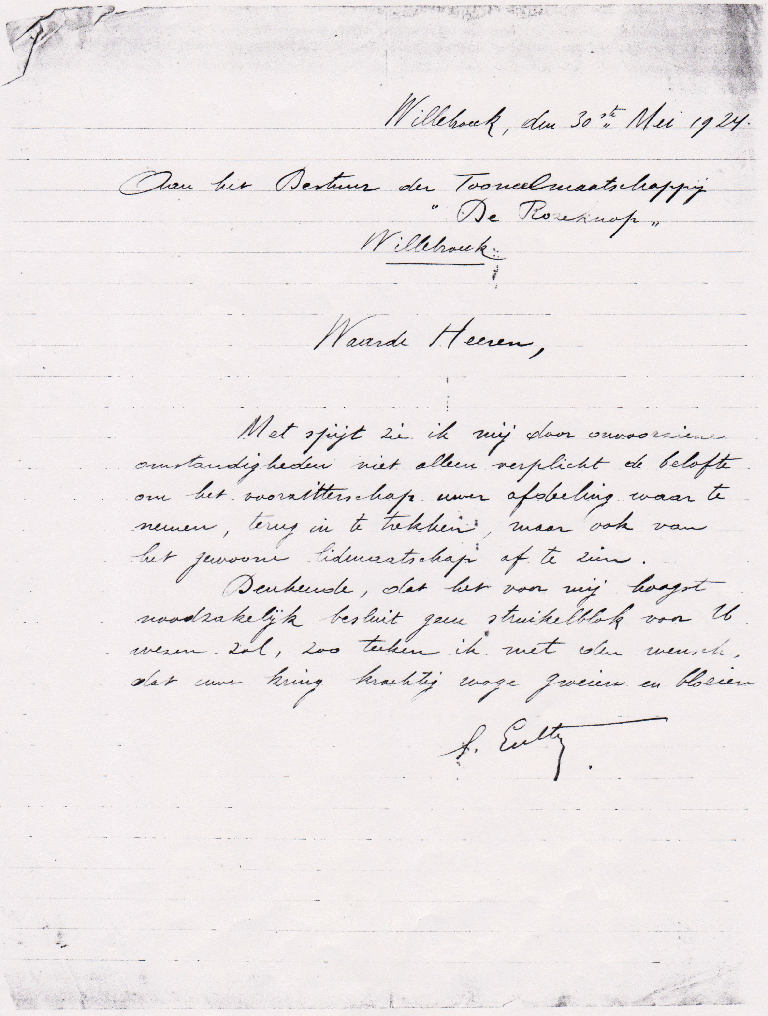 Willebroek, den 30ste Mei 1924.
Aan het Bestuur der Tooneelmaatschappij
" De Rozeknop "
Willebroek.
Waarde Heeren,
Met spijt zie ik mij door onvoorziene
omstandigheden niet alleen verplicht de belofte
om het voorzitterschap uwer afdeeling waar te
nemen, terug in te trekken, maar ook van
het gewoone lidmaatschap af te zien.
Denkende, dat het voor mij hoogst
noodzakelijk besluit geen struikelblok voor U
wezen zal, zoo teeken ik met den wensch,
dat uwe kring krachtig moge groeien en bloeien